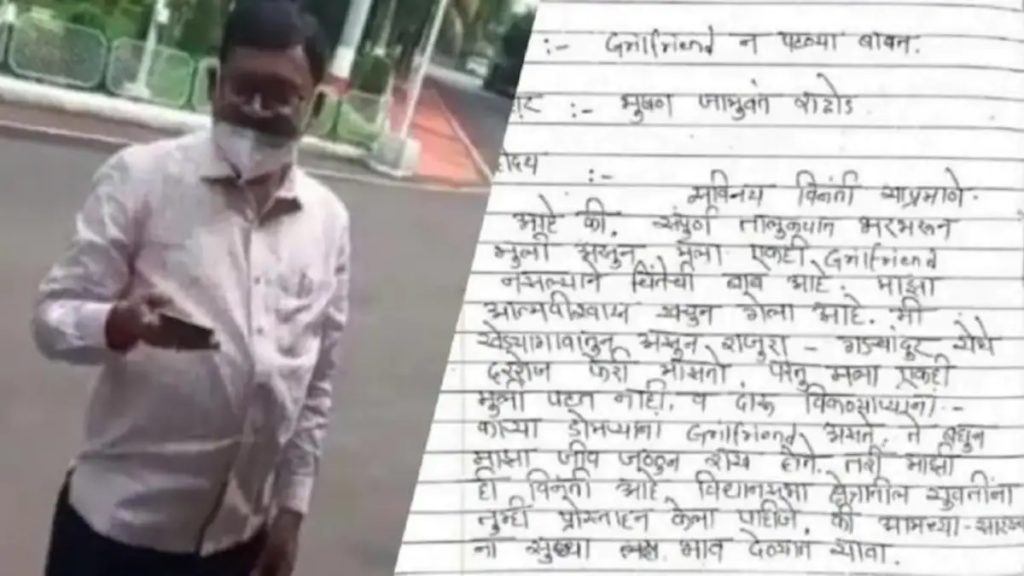 :- Grilfriend न पटल्या बाबत.
:- भुषण जामुवंत राठोड
:-
सविनय विनंती याप्रमाणे
आहे की, संपुर्ण तालुक्यात भरभरून
मुली असुन मला एकही Grilfriend
नसल्याने चिंतेची बाब आहे. माझा
आत्मवीश्वास खचुन गेला आहे. मी
खेड्यागावातुन असुन, राजुरा - गडचांदूर येथे
दररोज फेरी मारतो परंतु मला एकही
मुली पटत नाही. व दारू विकणाऱ्यांना -
काऱ्या डोमळ्यांना Grilfriend असते, ते बघुन
माझा जीव जळुन राख होतो. तरी माझी
ही विनंती आहे, विधानसभा क्षेत्रातील युवतींना
तुम्ही प्रोत्साहन केला पाहीजे, की आमच्या-सारख्या
ना सुध्दा भाव देण्यात यावा.